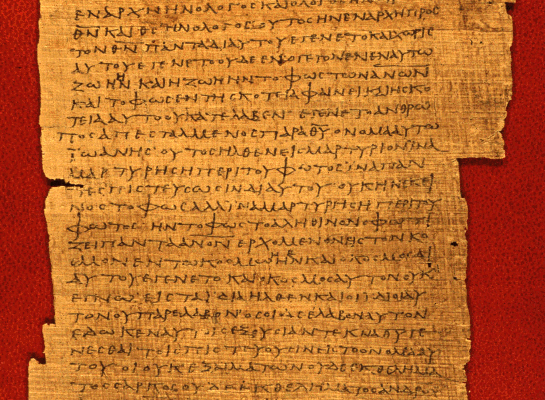 ΕΝΑΡΧΗΗΝΟΛΟΓΟΣΚΑΙΟΛΟΓΟΣ
ΘΝΚΑΙΘΣΗΝΟΛΟΓΟΣΟΥΤΟΣΗΝΕΝΑΡΧΗΠΡΟΣ
ΤΟΝΘΝΠΑΝΤΑΔΙΑΥΤΟΥΕΓΕΝΕΤΟΚΑΙΧΩΡΙΣ
ΑΥΤΟΥΕΓΕΝΕΤΟΟΥΔΕΕΝΟΓΕΓΟΝΕΝΕΝΑΥΤΩ
ΖΩΗΗΝΚΑΙΗΖΩΗΗΝΤΟΦΩΣΤΩΝΑΝΩΝ
ΚΑΙΤΟΦΩΣΕΝΤΗΣΚΟΤΕΙΑΦΑΙΝΕΙΚΑΙΗΣΚΟ
ΤΕΙΑΑΥΤΟΟΥΚΑΤΕΛΑΒΕΝ ΕΓΕΝΕΤΟΑΝΘΡΩ
ΠΟΣΑΠΕΣΤΑΛΜΕΝΟΣΠΑΡΑΘΥΟΝΟΜΑΑΥΤΩ
ΙΩΑΝΗΣΟΥΤΟΣΗΛΘΕΝΕΙΣΜΑΡΤΥΡΙΟΝΙΝΑ
ΜΑΡΤΥΡΗΣΗΠΕΡΙΤΟΥΦΩΤΟΣΙΝΑΠΑΝ
ΤΕΣΠΙΣΤΕΥΣΩΣΙΝΔΙΑΥΤΟΥΟΥΚΗΝΕΚΕΙ
ΝΟΣΤΟΦΩΣΑΛΛΙΝΑΜΑΡΤΥΡΗΣΗΠΕΡΙΤΟΥ
ΦΩΤΟΣΗΝΤΟΦΩΣΤΟΑΛΗΘΙΝΟΝΟΦΩΤΙ
ΖΕΙΠΑΝΤΑΑΝΟΝΕΡΧΟΜΕΝΟΝΕΙΣΤΟΝΚΟ
ΣΜΟΝΕΝΤΩΚΟΣΜΩΗΝΚΑΙΟΚΟΣΜΟΣΔΙ
ΑΥΤΟΥΕΓΕΝΕΤΟΚΑΙΟΚΟΣΜΟΣΑΥΤΟΝΟΥΚ
ΕΓΝΩΕΙΣΤΑΙΔΙΑΗΛΘΕΝΚΑΙΟΙΙΔΙΟΙΑΥ
ΤΟΝΟΥΠΑΡΕΛΑΒΟΝΟΣΟΙΔΕΕΛΑΒΟΝΑΥΤΟΝ
ΕΔΩΚΕΝΑΥΤΟΙΣΕΞΟΥΣΙΑΝΤΕΚΝΑΘΥΓΕ
ΝΕΣΘΑΙΤΟΙΣΠΙΣΤΕΥΟΥΣΙΝΕΙΣΤΟΟΝΟΜΑΑΥ
ΤΟΥΟΙΟΥΚΕΞΑΙΜΑΤΩΝΟΥΔΕΕΚΘΕΛΗΜΑ
ΤΟΣΣΑΡΚΟΣΟΥΔΕΕΚΘΕΛΗΜΑΤΟΣΑΝΔΡΟΥ